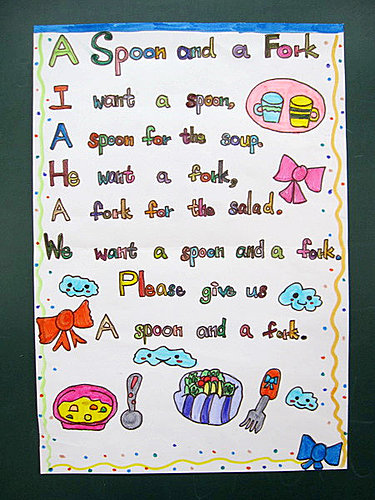 A Spoon and a Fork
I want a spoon,
A spoon for the soup.
He want a fork,
A fork for the salad.
We want a spoon and a fork.
Please give us
A spoon and a fork.